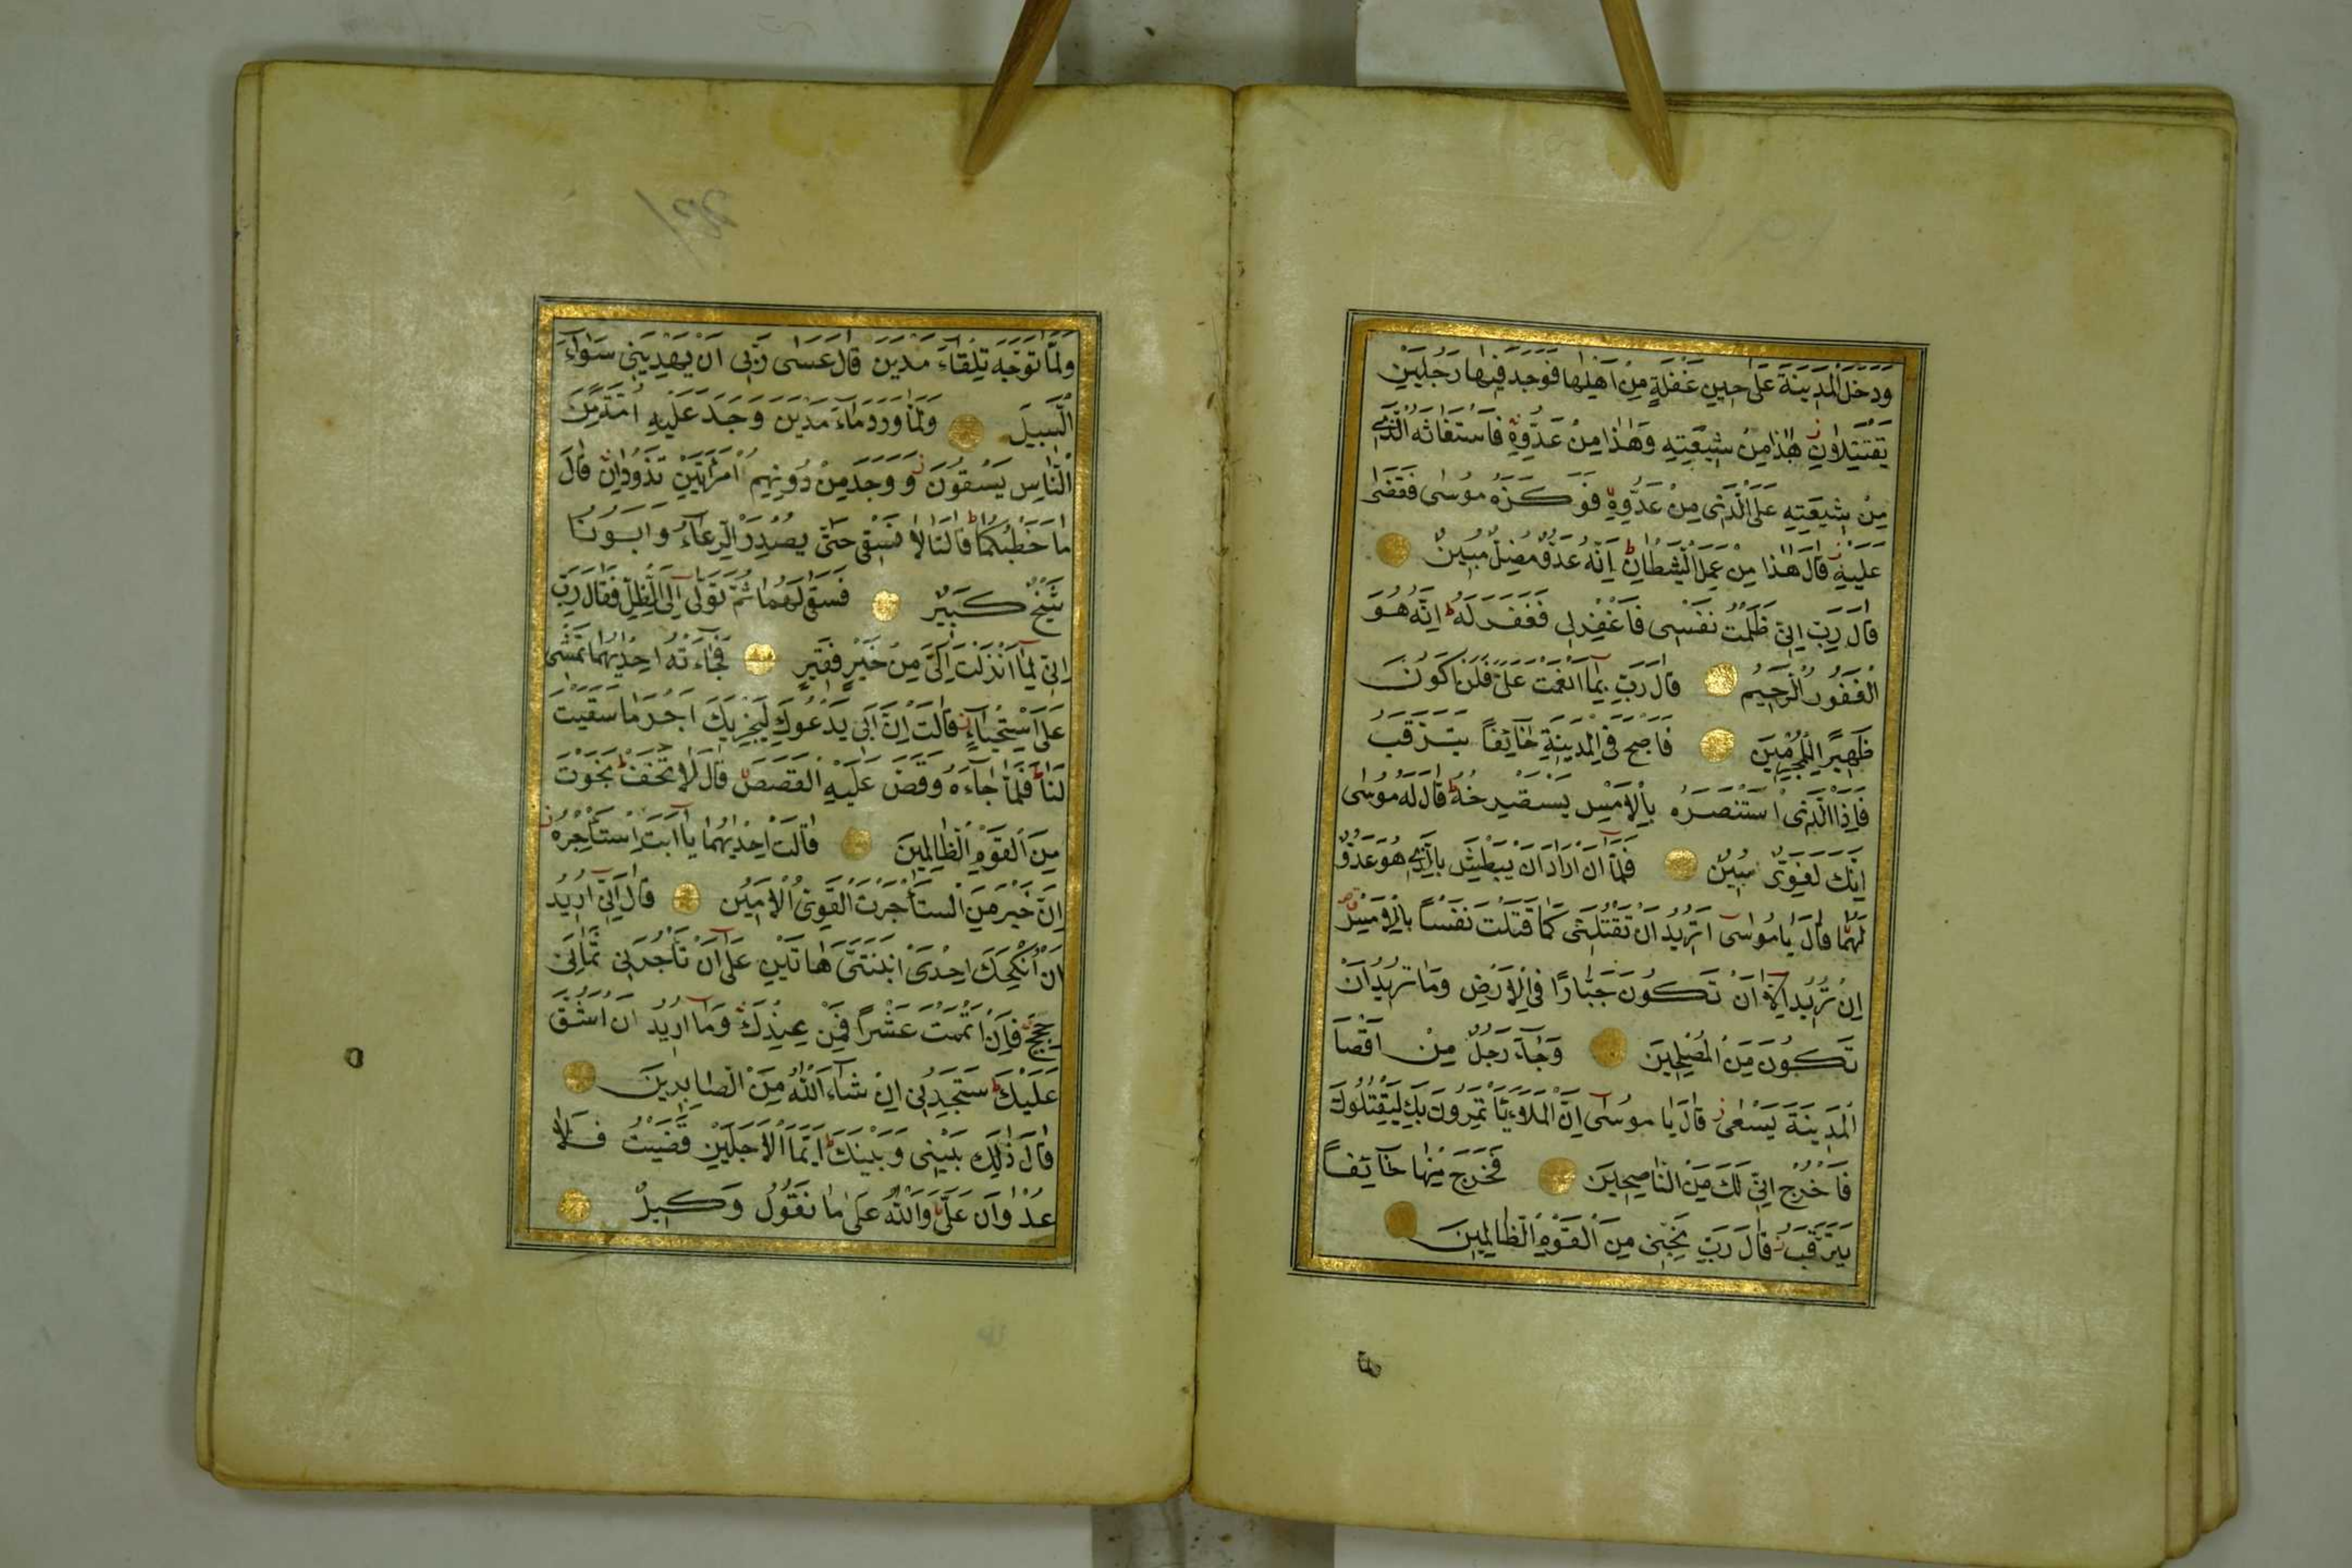 وَدَخَلَ الْمَدِينَةَ عَلٰى حِينِ غَفْلَةٍ مِنْ اَهْلِهَا فَوَجَدَ فِيهَا رَجُلَيْنِ
يَقْتَتِلَانِ هٰذَا مِنْ شِيعَتِهِ وَهٰذَا مِنْ عَدُوِّهِ فَاسْتَغَاثَهُ الَّذِي
مِنْ شِيعَتِهِ عَلَى الَّذِى مِنْ عَدُوِّهِ فَوَكَزَهُ مُوسٰى فَقَضٰى
عَلَيْهِ قَالَ هٰذَا مِنْ عَمَلِ الشَّيْطَانِ اِنَّهُ عَدُوٌّ مُضِلٌّ مُبِينٌ
قَالَ رَبِّ اِنِّى ظَلَمْتُ نَفْسِى فَاغْفِرْ لِى فَغَفَرَ لَهُ اِنَّهُ هُوَ
الْغَفُورُ الرَّحِيمُ قَالَ رَبِّ بِمَا اَنْعَمْتَ عَلَىَّ فَلَنْ اَكُونَ
ظَهِيرًا لِلْمُجْرِمِينَ فَاَصْبَحَ فِى الْمَدِينَةِ خَائِفًا يَتَرَقَّبُ
فَاِذَا الَّذِى اسْتَنْصَرَهُ بِالْاَمْسِ يَسْتَصْرِخُهُ قَالَ لَهُ مُوسٰى
اِنَّكَ لَغَوِىٌّ مُبِينٌ فَلَمَّا اَنْ اَرَادَ اَنْ يَبْطِشَ بِالَّذِي هُوَ عَدُوٌّ
لَهُمَا قَالَ يَا مُوسٰى اَتُرِيدُ اَنْ تَقْتُلَنِى كَمَا قَتَلْتَ نَفْسًا بِالْاَمْسِ
اِنْ تُرِيدُ اِلَّا اَنْ تَكُونَ جَبَّارًا فِى الْاَرْضِ وَمَا تُرِيدُ اَنْ
تَكُونَ مِنَ الْمُصْلِحِينَ وَجَاءَ رَجُلٌ مِنْ اَقْصَا
الْمَدِينَةِ يَسْعٰى قَالَ يَا مُوسٰى اِنَّ الْمَلَاَ يَاْتَمِرُونَ بِكَ لِيَقْتُلُوكَ
فَاخْرُجْ اِنِّى لَكَ مِنَ النَّاصِحِينَ فَخَرَجَ مِنْهَا خَائِفًا
يَتَرَقَّبُ قَالَ رَبِّ نَجِّنِى مِنَ الْقَوْمِ الظَّالِمِينَ
وَلَمَّا تَوَجَّهَ تِلْقَاءَ مَدْيَنَ قَالَ عَسٰى رَبِّى اَنْ يَهْدِيَنِى سَوَاءَ
السَّبِيلِ وَلَمَّا وَرَدَ مَاءَ مَدْيَنَ وَجَدَ عَلَيْهِ اُمَّةً مِنَ
النَّاسِ يَسْقُونَ وَوَجَدَ مِنْ دُونِهِمُ امْرَاَتَيْنِ تَذُودَانِ قَالَ
مَا خَطْبُكُمَا قَالَتَا لَا نَسْقِى حَتّٰى يُصْدِرَ الرِّعَاءُ وَاَبُونَا
شَيْخٌ كَبِيرٌ فَسَقٰى لَهُمَا ثُمَّ تَوَلّٰى اِلَى الظِّلِّ فَقَالَ رَبِّ
اِنِّى لِمَا اَنْزَلْتَ اِلَىَّ مِنْ خَيْرٍ فَقِيرٌ فَجَاءَتْهُ اِحْدٰيهُمَا تَمْشِى
عَلَى اسْتِحْيَاءٍ قَالَتْ اِنَّ اَبِى يَدْعُوكَ لِيَجْزِيَكَ اَجْرَ مَا سَقَيْتَ
لَنَا فَلَمَّا جَاءَهُ وَقَصَّ عَلَيْهِ الْقَصَصَ قَالَ لَا تَخَفْ نَجَوْتَ
مِنَ الْقَوْمِ الظَّالِمِينَ قَالَتْ اِحْدٰيهُمَا يَا اَبَتِ اسْتَاْجِرْهُ
اِنَّ خَيْرَ مَنِ اسْتَاْجَرْتَ الْقَوِىُّ الْاَمِينُ قَالَ اِنِّى اُرِيدُ
اَنْ اُنْكِحَكَ اِحْدَى ابْنَتَىَّ هَاتَيْنِ عَلٰى اَنْ تَاْجُرَنِى ثَمَانِىَ
حِجَجٍ فَاِنْ اَتْمَمْتَ عَشْرًا فَمِنْ عِنْدِكَ وَمَا اُرِيدُ اَنْ اَشُقَّ
عَلَيْكَ سَتَجِدُنِى اِنْ شَاءَ اللّٰهُ مِنَ الصَّابِرِينَ
قَالَ ذٰلِكَ بَيْنِى وَبَيْنَكَ اَيَّمَا الْاَجَلَيْنِ قَضَيْتُ فَلَا
عُدْوَانَ عَلَىَّ وَاللّٰهُ عَلٰى مَا نَقُولُ وَكِيلٌ